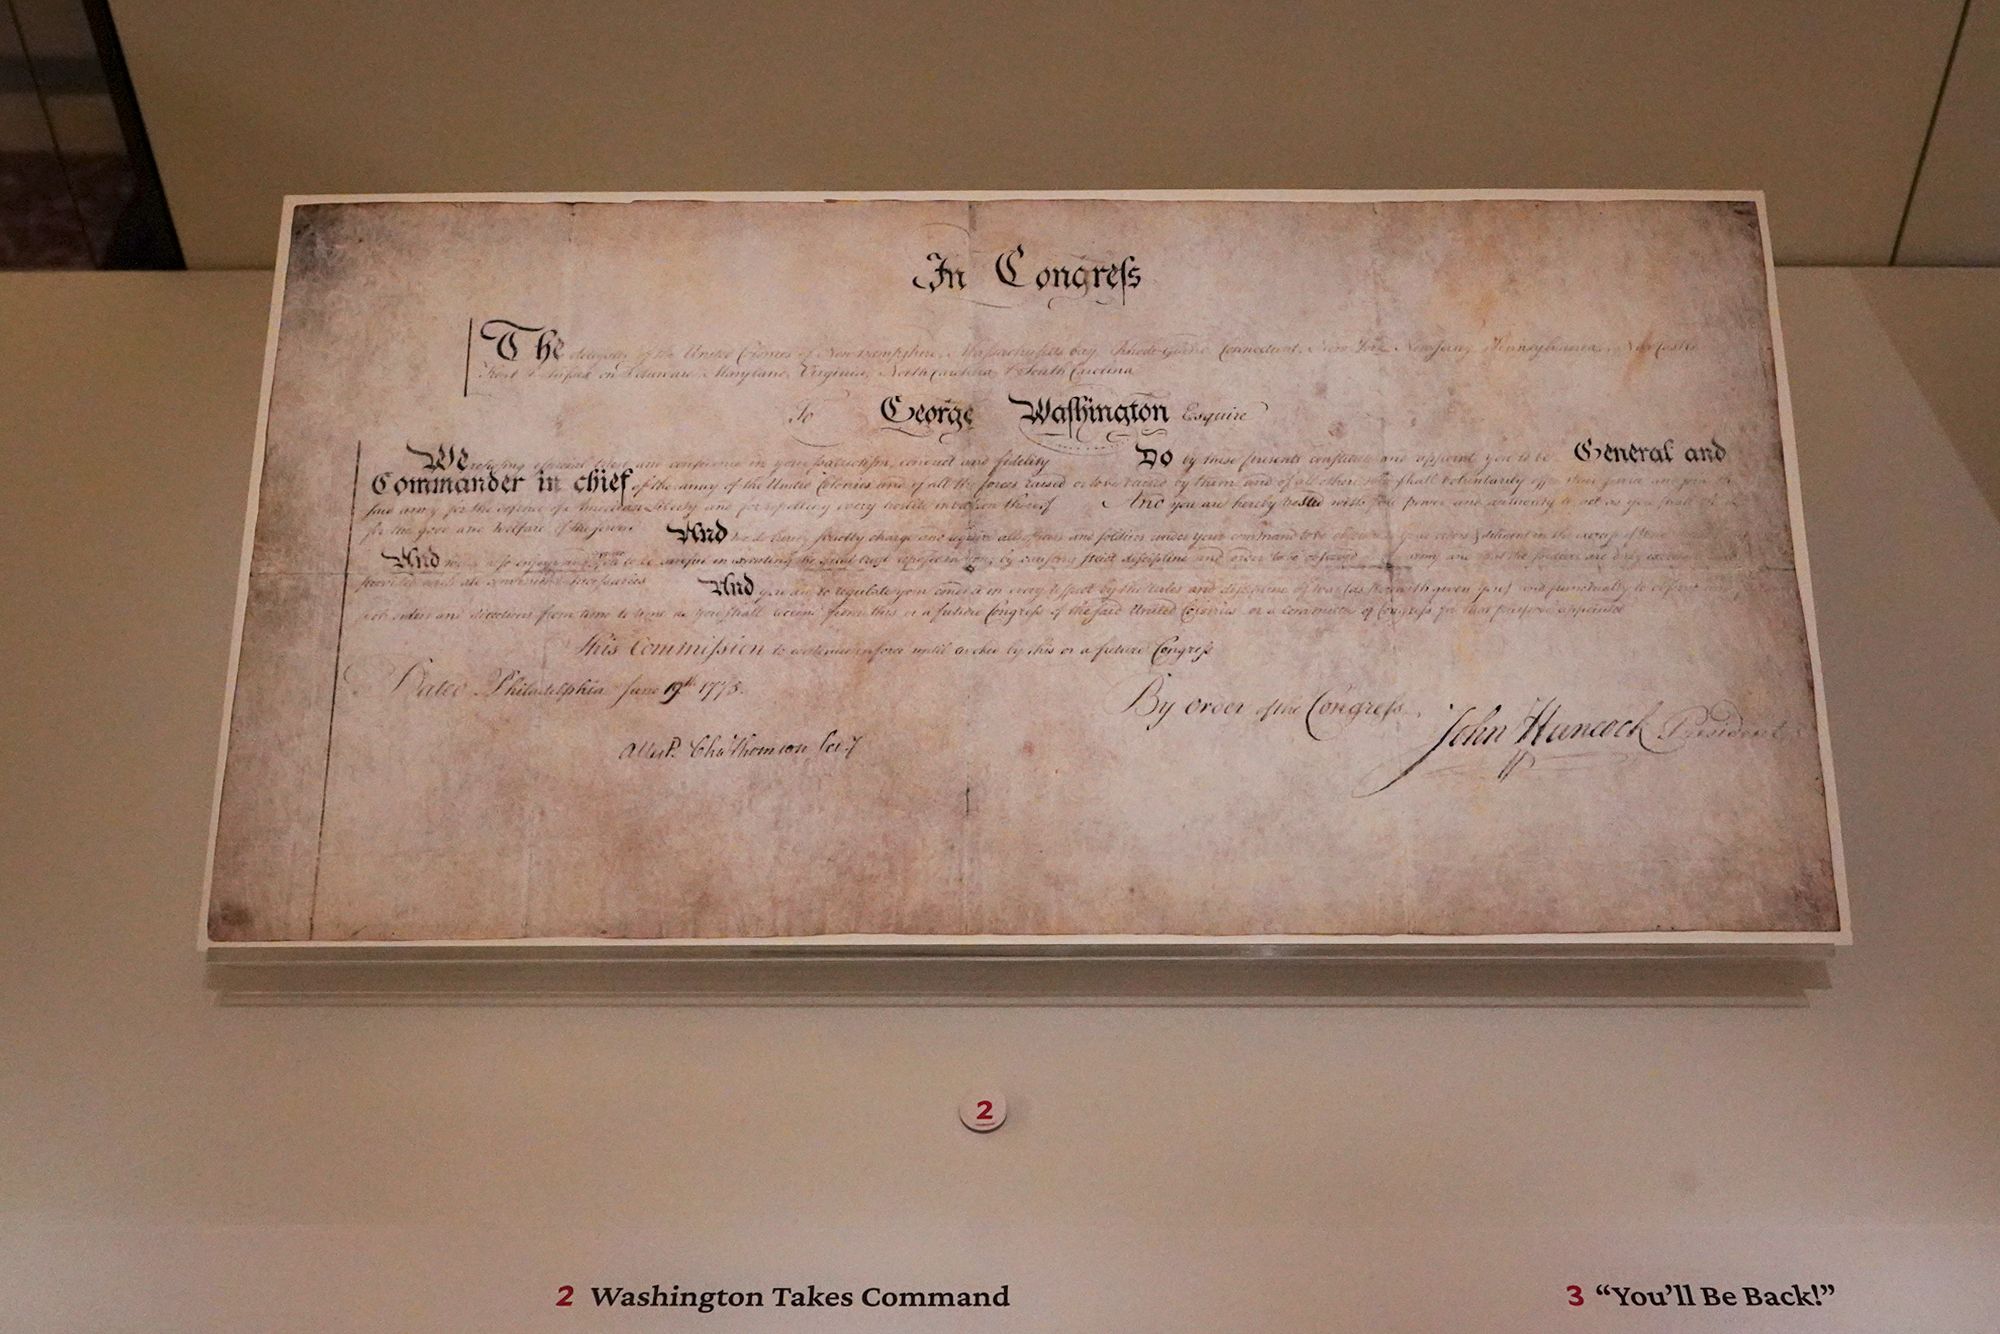 In Congreſs
The delegates of the United Colonies of New Hampshire, Massachusetts bay, Rhode Island, Connecticut, New York, New Jersey, Pennsylvania, New Castle
Kent & Sussex on Delaware, Maryland, Virginia, North Carolina & South Carolina
To George Waſhington Esquire
We reposing especial trust and confidence in your patriotism, conduct and fidelity Do by these presents constitute and appoint you to be General and
Commander in chief of the army of the United Colonies and of all the forces raised or to be raised by them and of all others who shall voluntarily offer their service and join the
said army for the defence of American Liberty and for repelling every hostile invasion thereof And you are hereby vested with full power and authority to act as you shall think
for the good and welfare of the service And we do hereby strictly charge and require all officers and soldiers under your command to be obedient to your orders & diligent in the exercise of their
And we also enjoin and require you to be careful in executing the great trust reposed in you, by causing strict discipline and order to be observed in the army and that the soldiers are duly exercised and
provided with all convenient necessaries And you are to regulate your conduct in every respect by the rules and discipline of war (as herewith given you) and punctually to observe and follow
such orders and directions from time to time as you shall receive from this or a future Congress of the said United Colonies or a committee of Congress for that purpose appointed
This Commiſsion to continue in force until revoked by this or a future Congreſs
Dated Philadelphia June 19th 1775.
By order of the Congreſs
John Hancock President
Attest. Chas Thomson Secy
2
2 Washington Takes Command
3 “You’ll Be Back!”